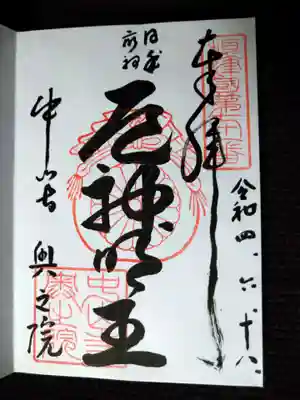 奉拝
令和四、六、十八
日本
最初
厄神明王
中山寺
奥之院